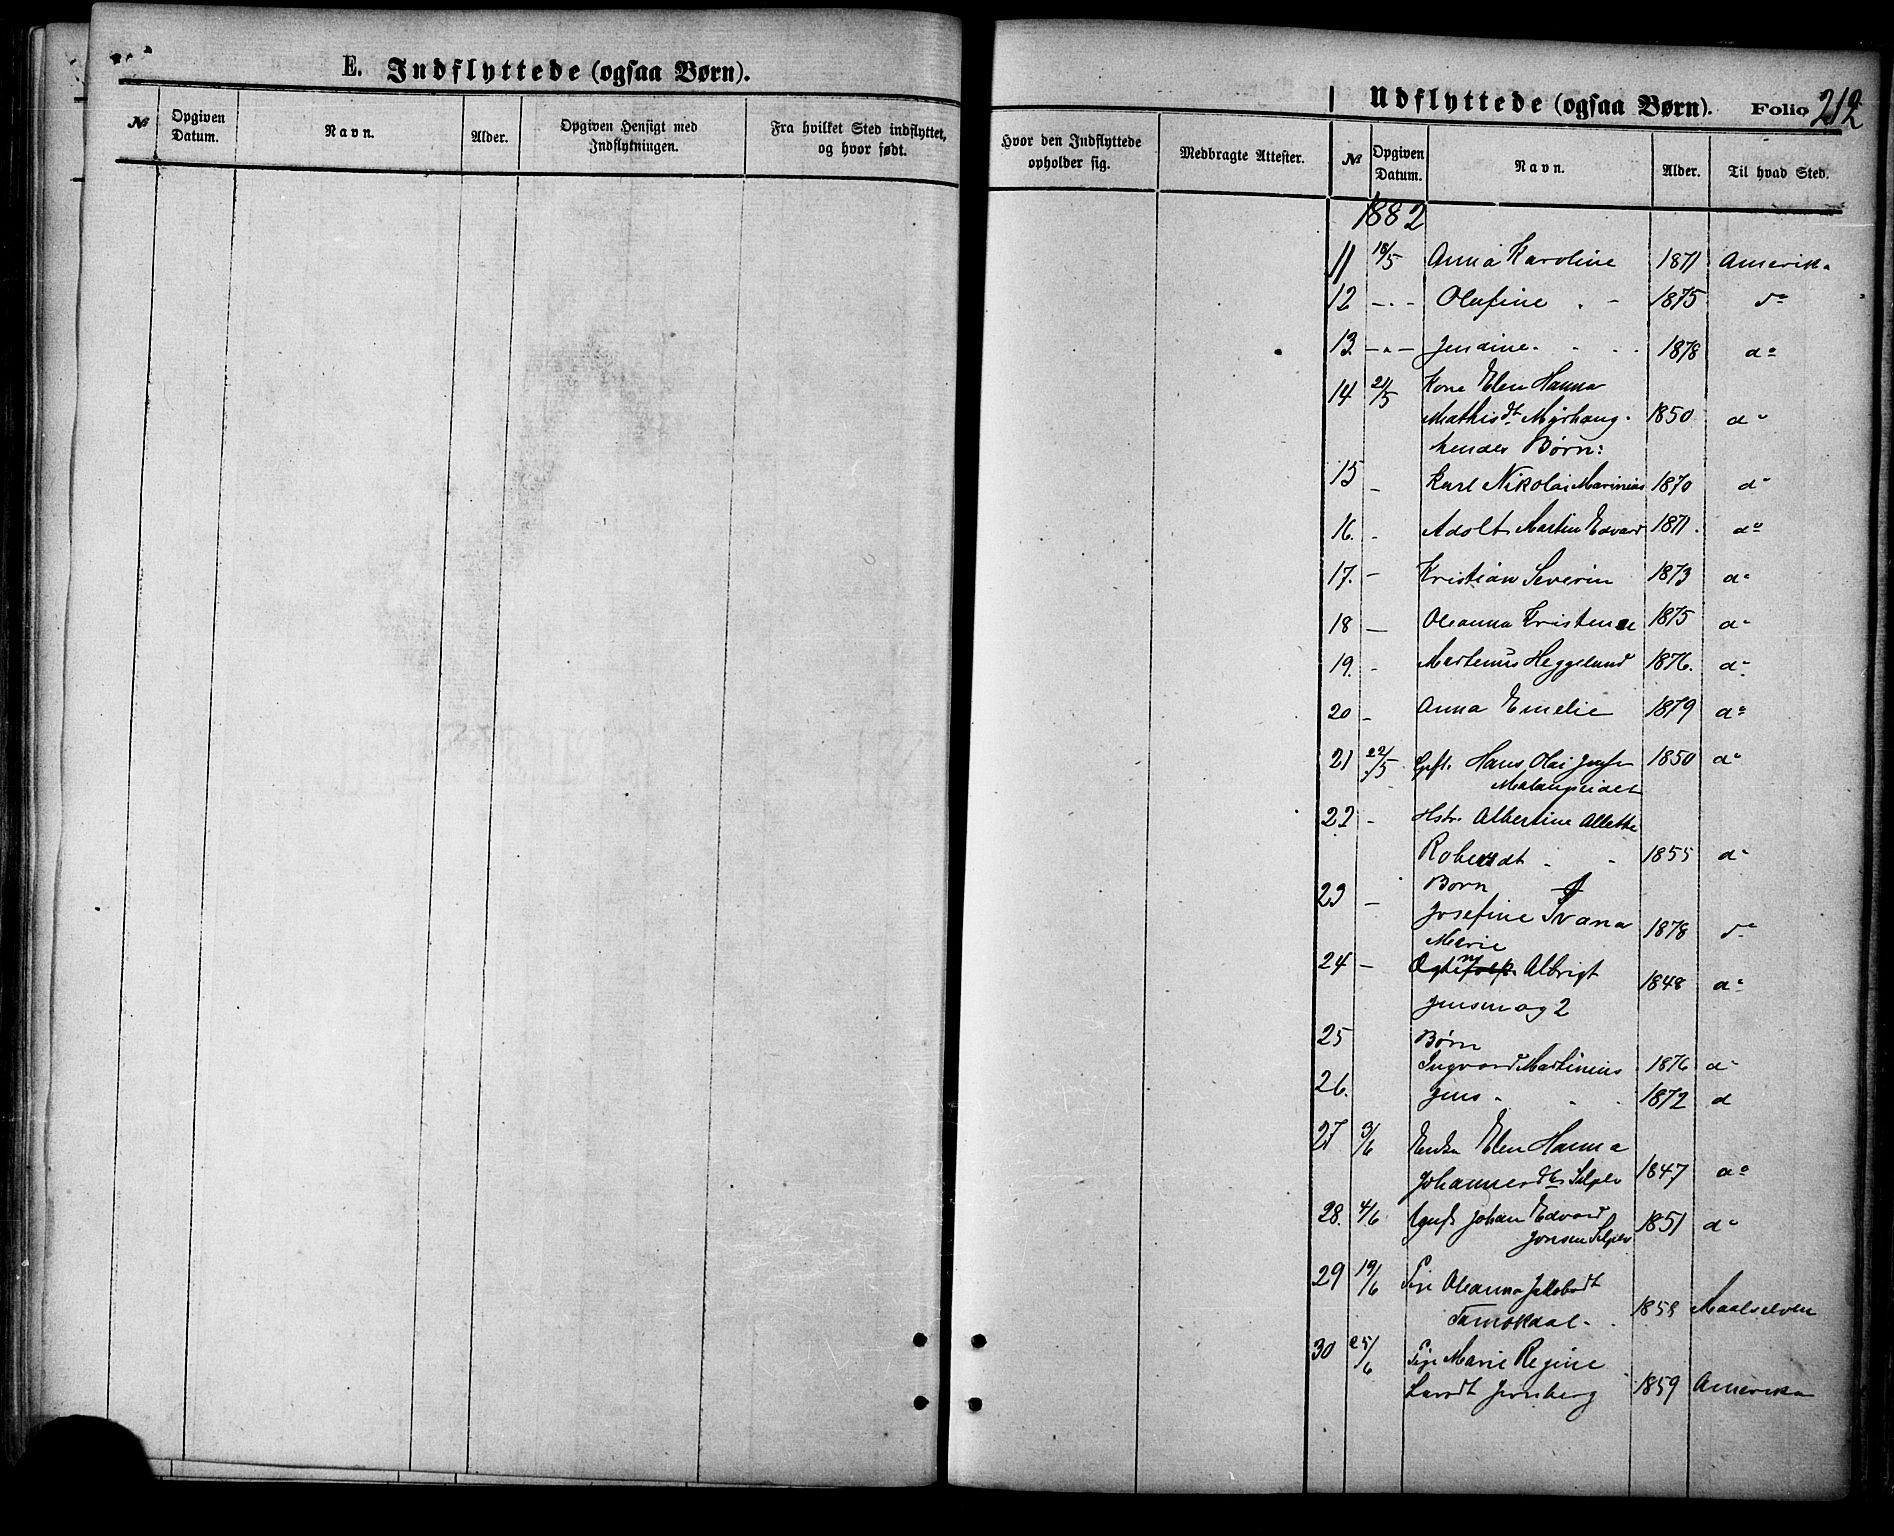 E. Indflyttede (ogsaa Børn).
№ Opgiven Datum. Navn. Alder. Opgiven Hensigt med Indflytningen. Fra hvilket Sted indflyttet, og hvor født.
Udflyttede (ogsaa Børn). Folio 212
Hvor den Indflyttede opholder sig. Medbragte Attester. № Opgiven Datum. Navn. Alder. Til hvad Sted.
1882
11 18/5 Anna Karoline 1871 Amerika
12 - . - Olufine . - 1875 do
13 - . - Jendine . . . 1878 do
14 21/5 Kone Elen Hanna
Mathisdt Myrhaug. 1850 do
hendes Børn:
15 - Karl Nikolai Marinius 1870 do
16. - Adolf Martin Edvard 1871. do
17. - Kristian Severin 1873 do
18 - Oleanna Kristense 1875 do
19. - Martenus Heggelund 1876. do
20 - Anna Emelie 1879 do
21 22/5 Hans Olai 1850 do
Malangseidet
22 - Hstr. Albertine Allette
dt . - 1855 do
23 - Børn
Josefine Ivana
Marie 1878 do
24 - Albrigt
Jensen og 2 1848 do
25 Børn
Ingvard Martinius 1876 do
26. Jens . . . 1872 d
27 3/6 Enke Elen Hanna
1847 do
28. 4/6 Johan Edvard
Jonsen 1851 do
29 19/6 Pige Oleanna
Tamokdal . Maalselven
30 25/6 Pige Marie Regine
Larsdt Jernberg 1859 Amerika